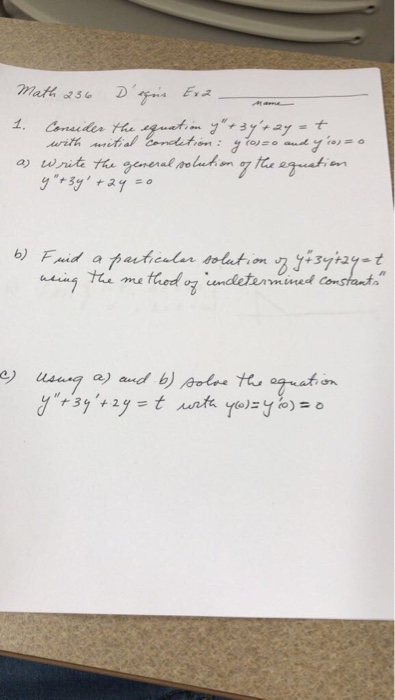 Math 236 D'eqns Ex2
name
1. Consider the equation y"+3y'+2y = t
with initial condition: y(0)=0 and y'(0)=0
a) Write the general solution of the equation
y"+3y'+2y=0
b) Find a particular solution of y"+3y'+2y=t
using the method of "undetermined constants"
c) Using a) and b) solve the equation
y"+3y'+2y=t with y(0)=y'(0)=0